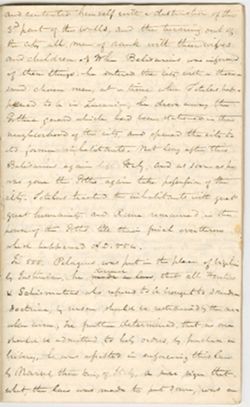 and contented himself with a destruction of the
3d part of the walls, and the turning out of
the city all men of rank with their wives
and children. When Belisarius was informed
of these things, he entered the city with a thou-
sand chosen men, at a time when Totilas hap-
pened to be in he drove away the
Gothic guard which had been stationed in the
neighborhood of the city, and opened the city to
its former inhabitants. Not long after this
Belisarius again left Italy. And as soon as he
was gone the Goths again take possession of the
city. Totilas treated the inhabitants with great
great humanity and Rome remained in the
power of the Goths till their final overthrow
which happened A.D. 554.
In 555. Pelagius was put in the place of Vigilius
by Justinian, he made a law that all
& Schismatics who refused to be brought to sound
doctrine, by reason should be restrained by the
He further determined, that no one
should be admitted to holy orders by
he was assisted in enforcing this law
by then of Italy, a sure sign that
what the law was made to put down, was an